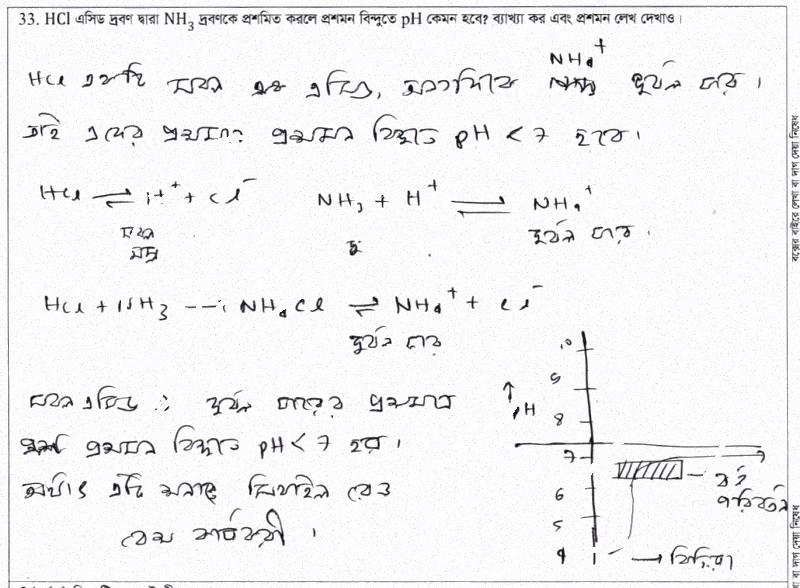 33. HCl এসিড দ্রবণ দ্বারা NH₃ দ্রবণকে প্রশমিত করলে প্রশমন বিন্দুতে pH কেমন হবে? ব্যাখ্যা কর এবং প্রশমন লেখ দেখাও।
NH₄⁺
HCl একটি সবল এসিড, দুর্বল ক্ষার।
তাই এদের প্রশমন প্রশমন বিন্দুতে pH < 7 হবে।
HCl ⇌ H⁺ + Cl⁻ NH₃ + H⁺ ⇌ NH₄⁺
সবল দুর্বল ক্ষার।
HCl + NH₃ → NH₄Cl ⇌ NH₄⁺ + Cl⁻
দুর্বল ক্ষার
সবল এসিড ও দুর্বল ক্ষারের প্রশমনে
প্রশমন বিন্দুতে pH < 7 হয়।
অর্থাৎ এটি মিথাইল রেড
বেশ কার্যকরী।
↑ pH
10
9
8
7
6
5
4
বর্ণ পরিবর্তন
→ বিক্রিয়া
বক্সের বাইরে লেখা বা দাগ দেয়া নিষেধ
বা দাগ দেয়া নিষেধ